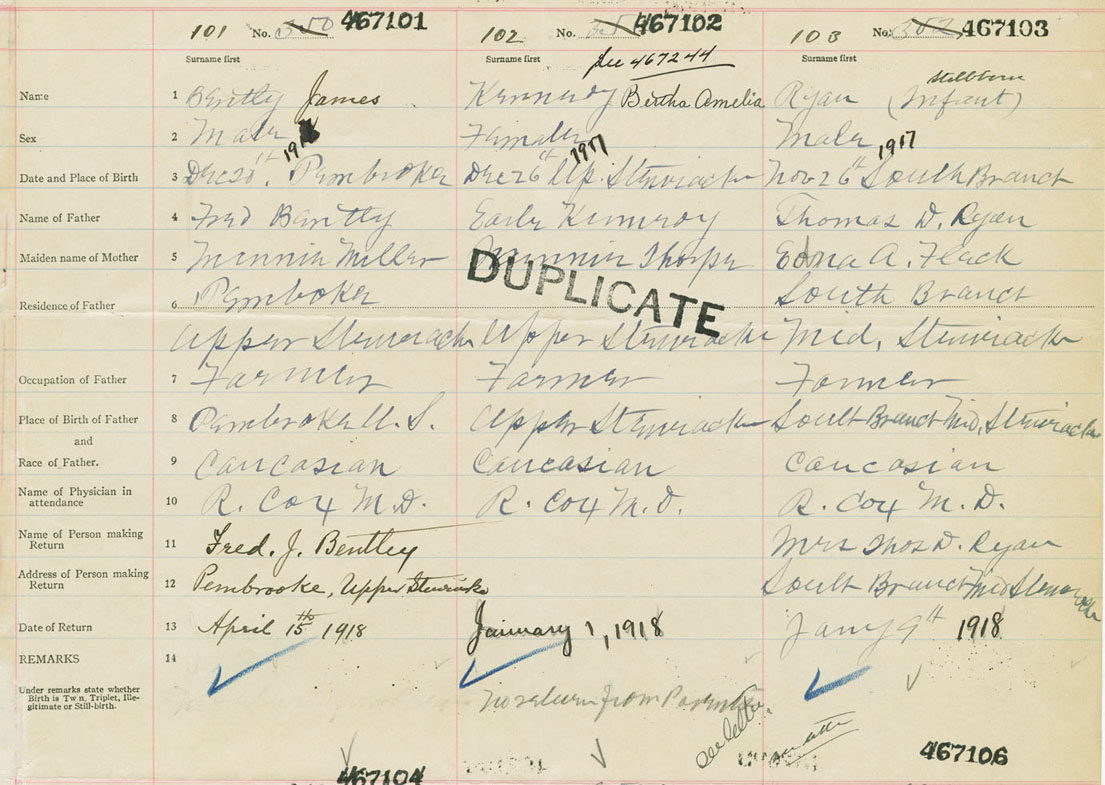 101 No. 350 467101 102 No. 351 467102 103 No. 352 467103
Surname first Surname first see 467244 Surname first
Name 1 Bentley James Kennedy Bertha Amelia Ryan (Infant) stillborn
Sex 2 Male Female Male
Date and Place of Birth 3 Dec 20th, Pembroke Dec 26th 1917 Up. Stewiacke Nov 26th 1917 South Branch
Name of Father 4 Fred Bentley Earle Kennedy Thomas D. Ryan
Maiden name of Mother 5 Minnie Miller Minnie Thorpe Edna A. Flack
DUPLICATE
Residence of Father 6 Pembroke South Branch
Upper Stewiacke Upper Stewiacke Mid. Stewiacke
Occupation of Father 7 Farmer Farmer Farmer
Place of Birth of Father 8 Pembroke U. S. Upper Stewiacke South Branch Mid. Stewiacke
and
Race of Father. 9 Caucasian Caucasian Caucasian
Name of Physician in
attendance 10 R. Cox M.D. R. Cox M.D. R. Cox M.D.
Name of Person making
Return 11 Fred. J. Bentley Mrs Thos D. Ryan
Address of Person making
Return 12 Pembrooke, Upper Stewiacke South Branch Mid Stewiacke
Date of Return 13 April 15th 1918 January 1, 1918 Jany 9th 1918
REMARKS 14
Under remarks state whether
Birth is Twin, Triplet, Ille-
gitimate or Still-birth.
No return from Parents.
see letter
see letter
467104 467106